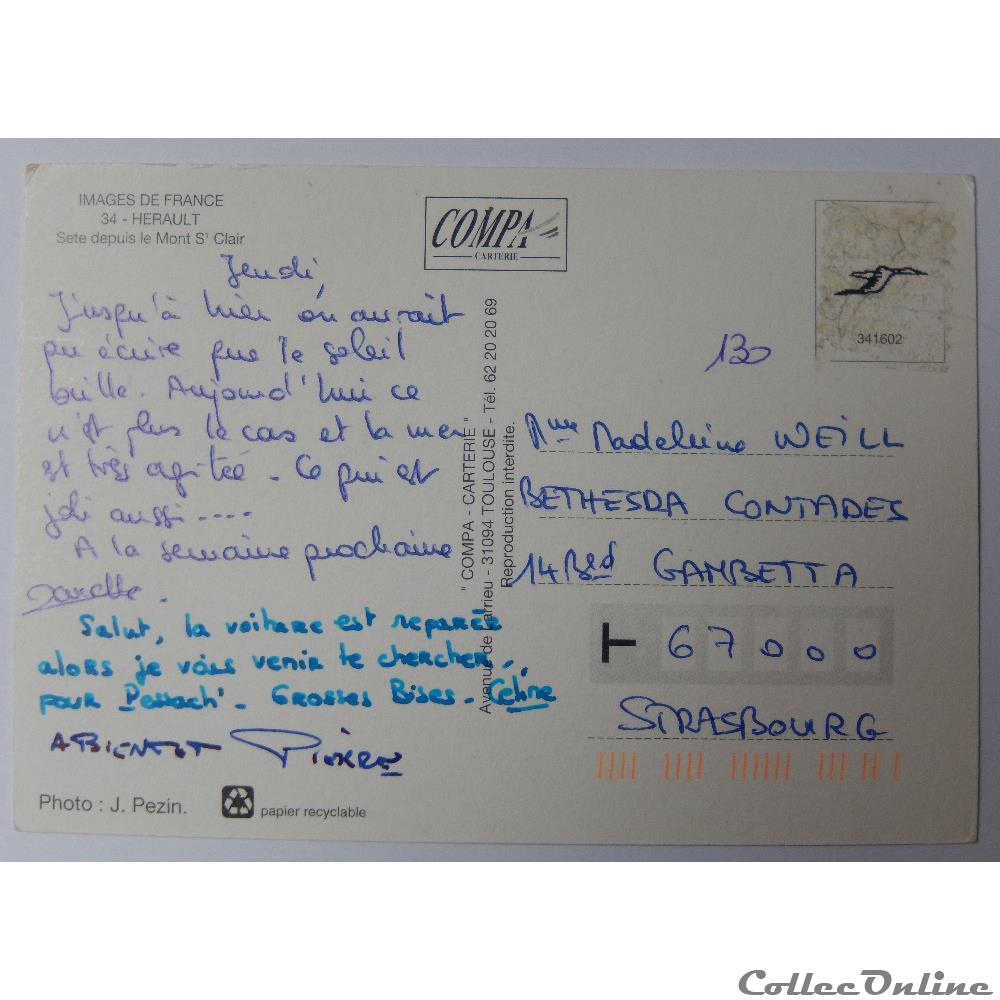 IMAGES DE FRANCE
34 - HERAULT
Sete depuis le Mont St Clair
COMPA
CARTERIE
341602
Jeudi,
Jusqu'à hier on aurait
pu écrire que le soleil
brille. Aujourd'hui ce
n'est plus le cas et la mer
est très agitée. Ce qui est
joli aussi ....
A la semaine prochaine
Salut, la voiture est reparée
alors je vais venir te chercher
pour Pessach'. Grosses Bises. Celine
A BIENTOT Pierre
Photo : J. Pezin.
papier recyclable
" COMPA - CARTERIE "
Avenue de Larrieu - 31094 TOULOUSE - Tél. 62 20 20 69
Reproduction interdite.
130
Mme Madeleine WEILL
BETHESDA CONTADES
14 Bld GAMBETTA
67000
STRASBOURG
CollecOnline